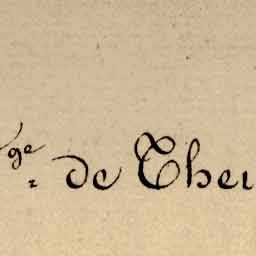 ge de Thei